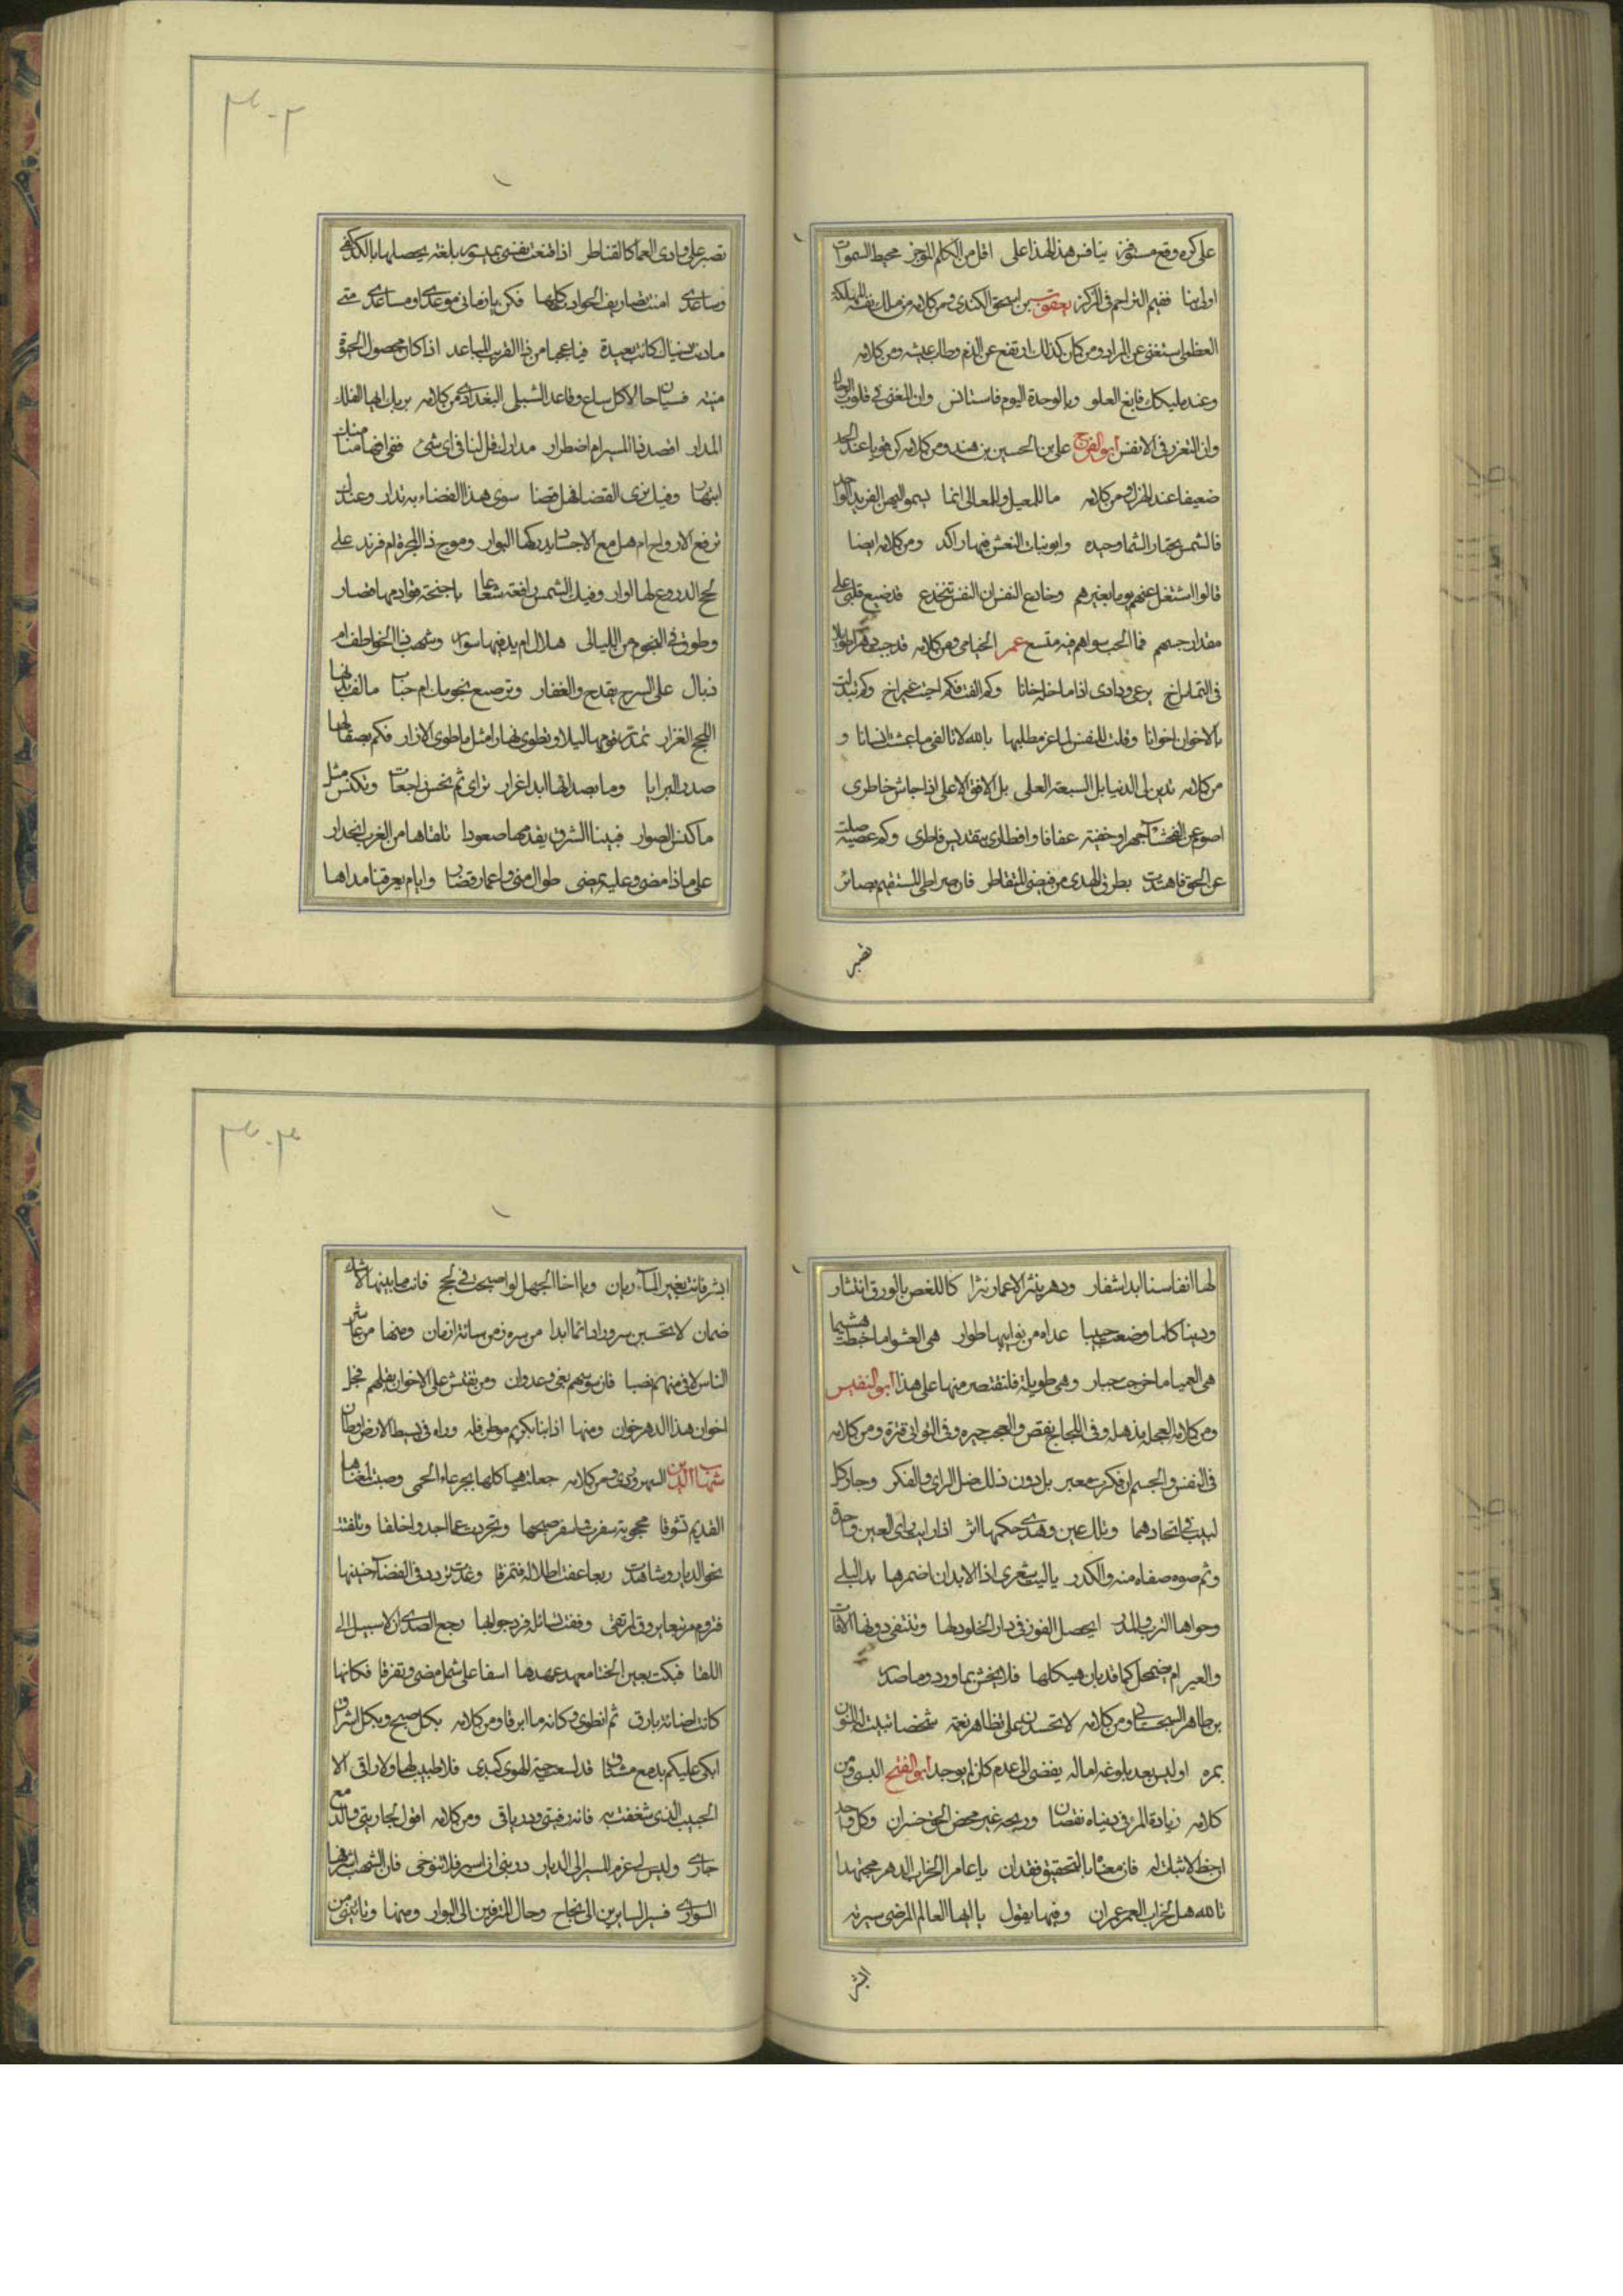 على كره وقع مستوفز ينافس هذا لهذا على اقل من الكلم الموجز محيط السموات
اولى بنا ففيم التزاحم فى المركز يعقوب بن اسحق الكندى ومن كلامه من ملك نفسه المملكة
العظمى استغنى عن المراد ومن كان كذلك ارتفع عن الذم وطاب عيشه ومن كلامه
وعند مليكك فابغ العلو وبالوحدة اليوم فاستانس وان الغنى فى قلوب الرجال
وان التعزز فى الانفس ابو الفرج على بن الحسين بن هندو ومن كلامه كن قويا عند الجد
ضعيفا عند الهزل ومن كلامه ما للمعيل وللمعالى انما يسمو اليهن الفريد الواحد
فالشمس تجتاز السما وحيده وابو بنات النعش فيها راكد ومن كلامه ايضا
قالوا اشتغل عنهم يوما بغيرهم وخادع النفس ان النفس تنخدع قد صيغ قلبى على
مقدار حبهم فما لحب سواهم فيه متسع عمر الخيامى ومن كلامه
فى التماس اخ يرعى ودادى اذا ما خله خانا وكم الفت فكم اخيت غير اخ وكم تبدلت
بالاخوان اخوانا وقلت للنفس لما عز مطلبها بالله لا تالفى ما عشت انسانا و
من كلامه تدين لى الدنيا بل السبعة العلى بل الافق الاعلى اذا جاش خاطرى
اصوم عن الفحشاء جهرا وخفية عفافا وافطارى بتقديس فاطرى وكم عصبة ضلت
عن الحق فاهتدت بطرق الهدى من فيضى المتقاطر فان صراطى المستقيم بصائر
نصبن
نصبن على وادى العما كالقناطر اذا قنعت نفسى بميسور بلغة يحصلها بالكد كفى
وساعدى امنت تصاريف الحوادث كلها فكن يا زمانى موعدى او مساعدى متى
ما دنت دنياك كانت بعيدة فيا عجبا من ذا القريب المباعد اذا كان محصول الحيوة
منية فسيان حالا كل ساع وقاعد الشبلى البغدادى من كلامه بربك ايها الفلك
المدار اقصد ذا المسير ام اضطرار مدارك قل لنا فى اى شئ ففى افهامنا منك
انبهار وفيك نرى الفضا فهل فضا سوى هذا الفضاء به تدار وعندك
ترفع الارواح ام هل مع الاجساد يدركها البوار وموج ذا المجرة ام فرند على
لجج الدروع لها اوار وفيك الشمس رافعة شعاعا باجنحة قوادمها قصار
وطوق فى النجوم من الليالى هلال ام يد فيها سوار وشهب ذا الخواطف ام
ذبال على السرج يقدح والغفار وترصيع نجومك ام حباب
اللجج الغزار تمد رقومها ليلا وتطوى نهارا مثل ما طوى الازار فكم بصقالها
صدى البرايا وما يصدا لها ابدا غرار تراى ثم تخنس راجعات وتكنس مثل
ما كنس الصوار فبينا الشرق يقدمها صعودا تلقاها من الغرب انحدار
على ماذا مضى وعليه يمضى طوال منى واعمار قصار وايام يعرفنا مداها
لها انفاسنا ابدا شفار ودهر ينثر الاعمار نثرا كما للغصن بالورق انتثار
ودنيا كلما وضعت جنينا غداه من نوايبها ظوار هى العشوا ما خبطت هشيما
هى العميا ما جرحت جبار وهى طويلة فلنقتصر منها على هذا ابو النفيس
فى النفس والجسم ان فكرت معتبر بل دون ذلك ضل الراى والفكر وحار كل
لبيب فى اتحادهما
يا ليت شعرى اذا الابدان اضمرها يد البلى
وحواها الترب والمدر ايحصل الفوز فى دار الخلود لها وتنتفى دونها الافات
والغير ام تضمحل كما قد بان هيكلها فلا تحس بما ورد وما صدر
بن طاهر السجستانى ومن كلامه لا تحسدن على تظاهر نعمة شخصا تبيت له المنون
بمره او ليس بعد بلوغه اماله يفضى الى عدم كان لم يوجد ابو الفتح البستى ومن
كلامه زيادة المرء فى دنياه نقصان وربحه غير محض الخير خسران وكل وجدان
حظ لا ثبات له فان معناه بالتحقيق فقدان يا عامر الخراب الدهر مجتهدا
تالله هل لخراب العمر عمران وفيها يقول يا ايها العالم المرضى سيرته
ابشر
ابشر فانت بغير الماء ريان ويا اخا الجهل لو اصبحت فى لجج فانت ما بينها لا شك
ظمان لا تحسبن سرورا دائما ابدا من سره زمن سائته ازمان ومنها من عاشر
الناس لاقى منهم نصبا فان سوسهم بغى وعدوان ومن يفتش على الاخوان يقلهم فجل
اخوان هذا الدهر خوان ومنها اذا نبا بكريم موطن فله وراه فى بسيط الارض اوطان
شهاب الدين السهروردى ومن كلامه خلعت هياكلها بجرعاء الحمى وصبت لمغناها
القديم تشوقا محجوبة سفرت واسفر صبحها وتجردت عما اجد واخلقا وتلفتت
نحو الديار وشاهدت ربعا عفت اطلاله فتمزقا وغدت تردد فى الفضا حنينها
وقفت تسائله فرد جوابها رجع الصدى ان لا سبيل الى
اللقا فبكت بعين الخنسا معهد عهدها اسفا على شمل مضى وتفرقا فكانها
كانت اضائة بارق ثم انطوى وكانه ما ابرقا ومن كلامه بكل صبح وبكل اشراق
ابكى عليكم بدمع مشتاق قد لسعت حية الهوى كبدى فلا طبيب لها ولا راقى الا
الحبيب الذى شغفت به فانه رقيتى وترياقى ومن كلامه اقول لجارتى والدمع
جارى ولى عزم المسير الى الديار دعينى ان اسير فلا تنوحى فان الشهب اشرفها
السوارى فسير السايرين الى نجاح وحال المترفين الى البوار ومنها